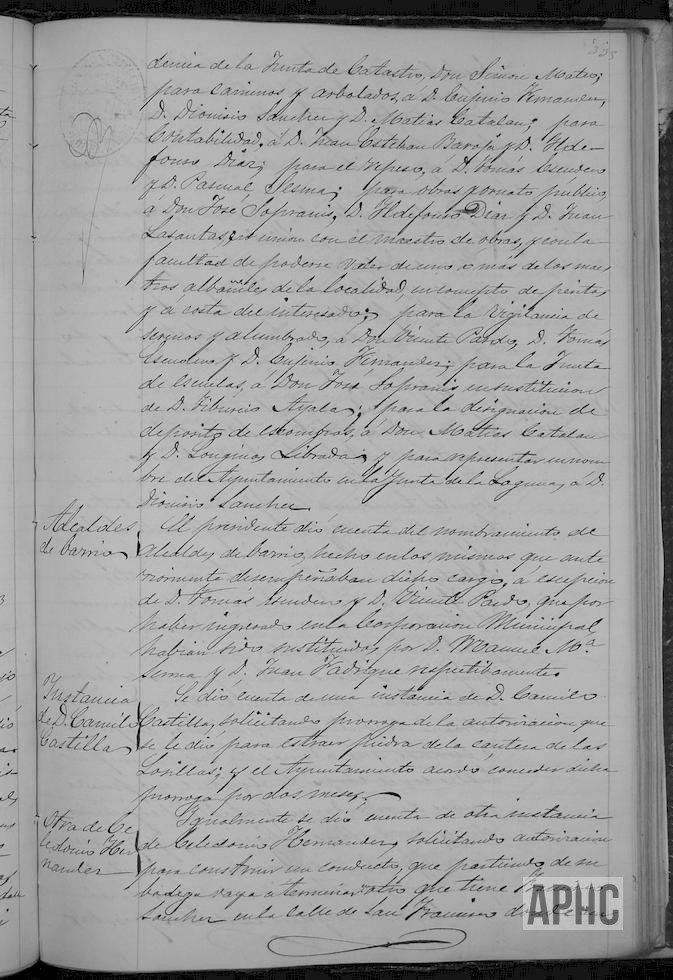 335
dencia de la Junta de Catastro, Don Simon Mateo;
para caminos y arbolados, á D. Eugenio Fernandez,
D. Dionisio Sanchez y D. Matias Catalan; para
Contabilidad, á D. Juan Esteban Baraja y D. Ilde-
fonso Diaz; para el repeso, á D. Tomás Escudero
y D. Pascual Sesma; para obras y ornato publico,
á Don José Sopranis, D. Ildefonso Diaz y D. Juan
Lasantas, en union con el maestro de obras, y con la
facultad de poderse valer de uno ó más de los maes
tros albañiles de la localidad, en concepto de peritos
y á costa del interesado; para la vigilancia de
serenos y alumbrado, á Don Vicente Pardo, D. Tomás
Escudero y D. Eugenio Fernandez; para la Junta
de escuelas, á Don José Sopranis en sustitucion
de D. Tiburcio Ayala; para la designacion de
deposito de escombros, á Don Matias Catalan
y D. Longinos Librada; y para representar en nom
bre del Ayuntamiento en la Junta de la Laguna, á D.
Dionisio Sanchez.
Alcaldes
de barrio
El presidente dió cuenta del nombramiento de
alcaldes de barrio, hecho en los mismos que ante
riormente desempeñaban dicho cargo, á escepcion
de D. Tomás Escudero y D. Vicente Pardo, que por
haber ingresado en la Corporacion Municipal,
habian sido sustituidos por D. Manuel Mª
Serma y D. Juan Fadrique respectibamente.
Instancia
de D. Camilo
Castilla
Se dió cuenta de una instancia de D. Camilo
Castilla, solicitando prorroga de la autorizacion que
se le dió para estraer piedra de la cantera de las
Losillas; y el Ayuntamiento acordó conceder dicha
prorroga por dos meses.
Otra de Ce
ledonio Her
nandez
Igualmente se dió cuenta de otra instancia
de Celedonio Hernandez, solicitando autorizacion
para construir un conducto, que partiendo de su
bodega vaya á terminar otro que tiene
Sanchez en la calle de San Francisco donde
APHC